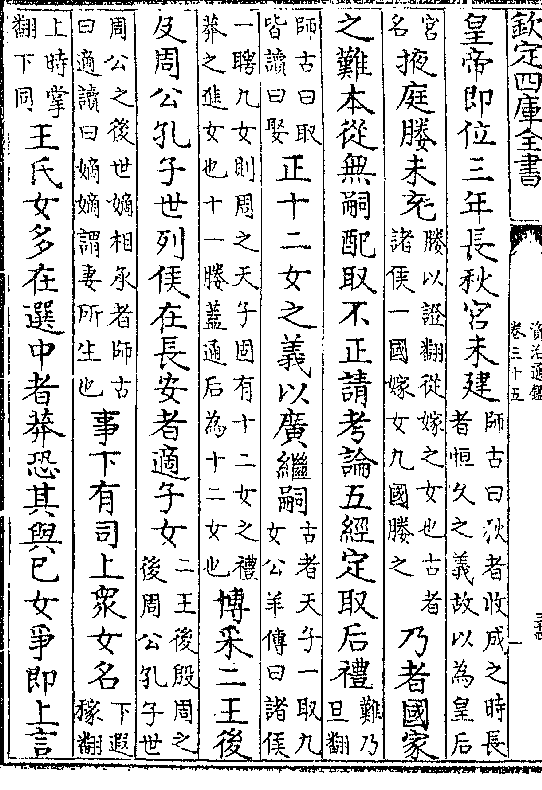 欽定四庫全書
資治通鑑
卷三十五
皇帝即位三年長秋宮未建
師古曰秋者收成之時長
者恒久之義故以為皇后
宮
名
掖庭媵未充
媵以證翻從嫁之女也古者
諸侯一國嫁女九國媵之
乃者國家
之難本從無嗣配取不正請考論五經定取后禮
難乃
旦翻
師古曰取
皆讀曰娶
正十二女之義以廣繼嗣
古者天子一取九
女公羊傳曰諸侯
一聘九女則周之天子固有十二女之禮
莽之進女也十一媵蓋通后為十二女也
博采二王後
及周公孔子世列侯在長安者適子女
二王後殷周之
後周公孔子世
周公之後世嫡相承者師古
曰適讀曰嫡嫡謂妻所生也
事下有司上衆女名
下遐
稼翻
上時掌
翻下同
王氏女多在選中者莽恐其與己女爭即上言